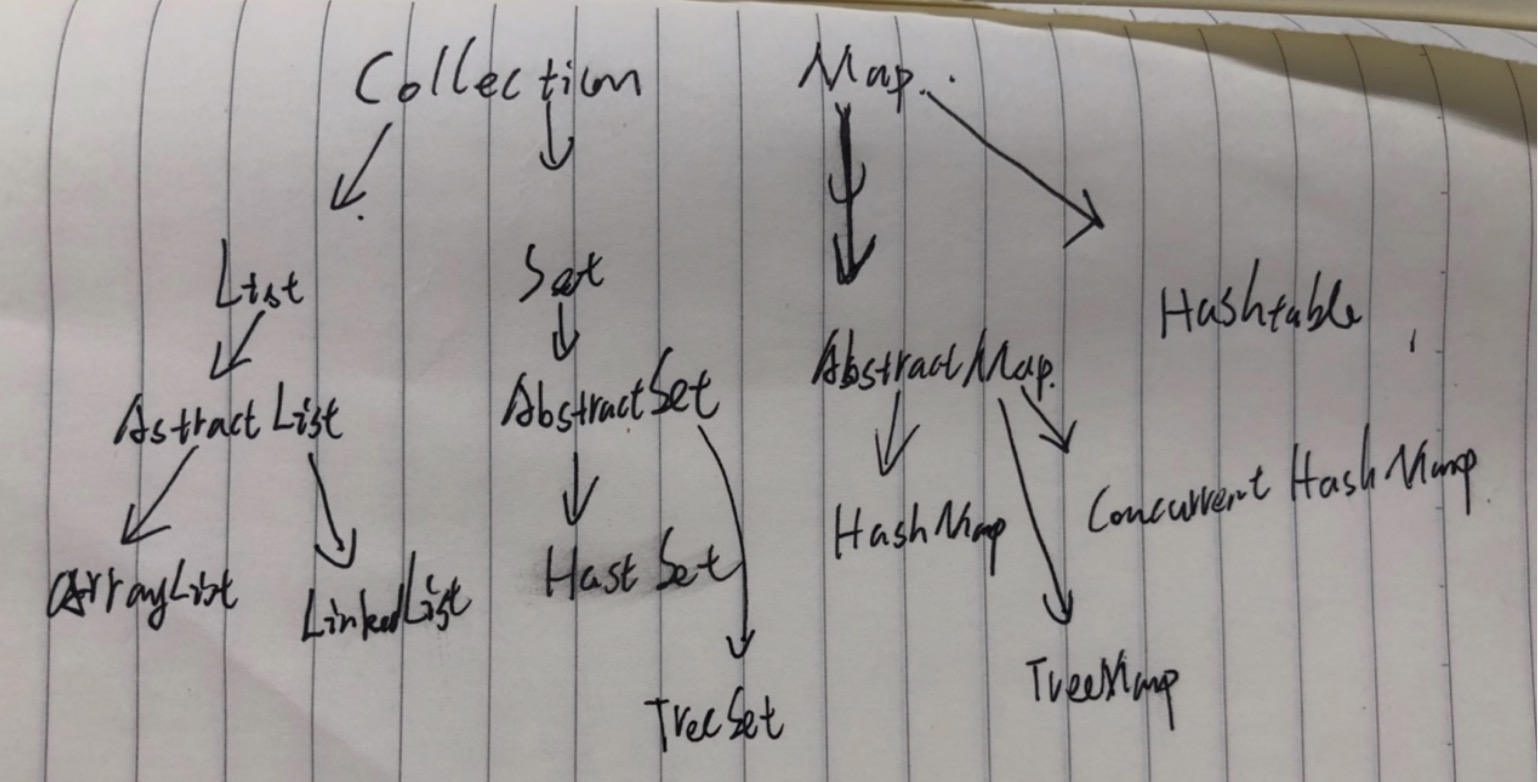 Collection Map.
List Set Hashtable
AstractList AbstractSet AbstractMap.
ArrayList LinkedList Hast Set HashMap Concurrent HashMap
TreeSet TreeMap